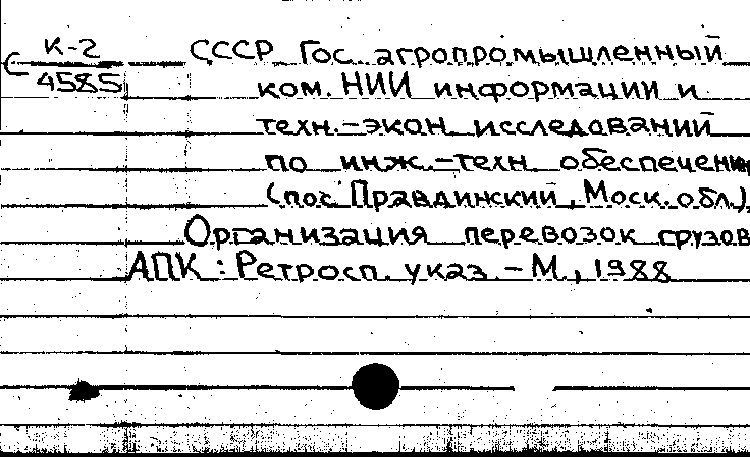 К-2
С 4585
СССР Гос. агропромышленный
ком. НИИ информации и
техн.-экон. исследований
по инж.-техн. обеспечени
(пос. Правдинский, Моск. обл.)
Организация перевозок грузов
АПК : Ретросп. указ. - М., 1988